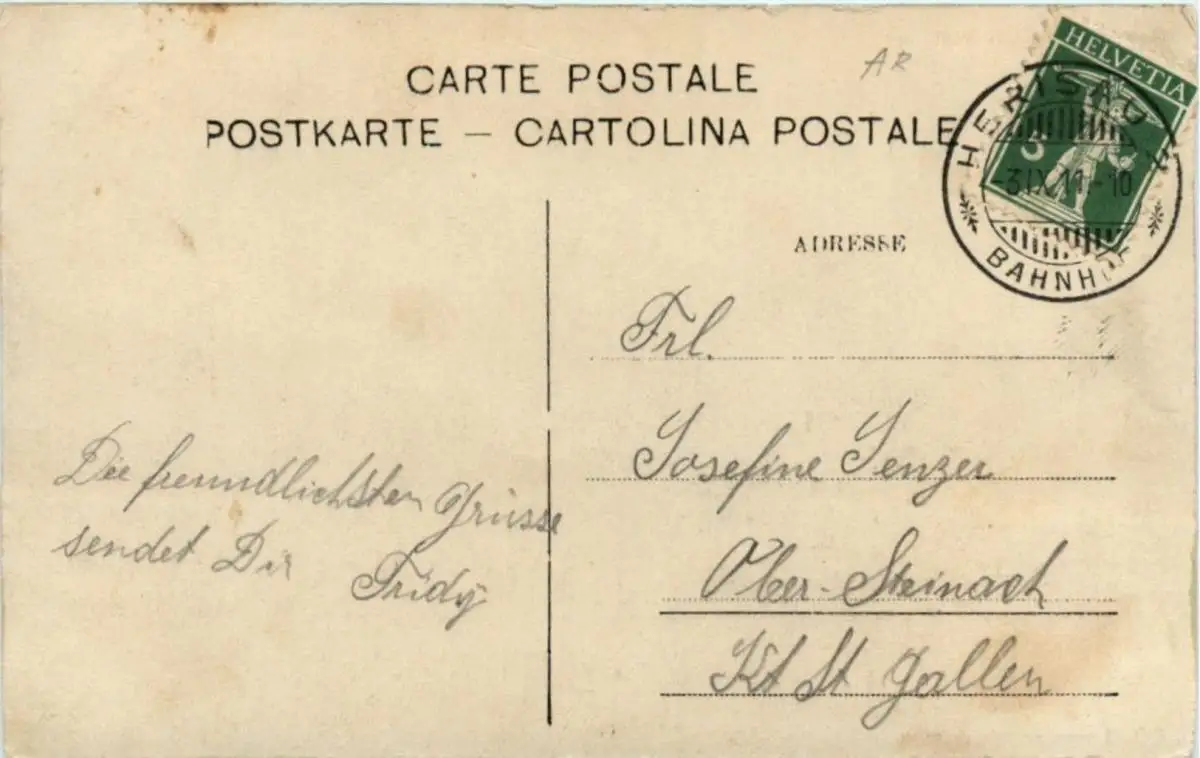 CARTE POSTALE
AR
POSTKARTE — CARTOLINA POSTALE
HELVETIA
5
HERISAU
-3.IX.11.-10
BAHNHOF
ADRESSE
Frl.
Josefine Senzer
Ober-Steinach
Kt St Gallen
Die freundlichsten Grüsse
sendet Dir
Fridy